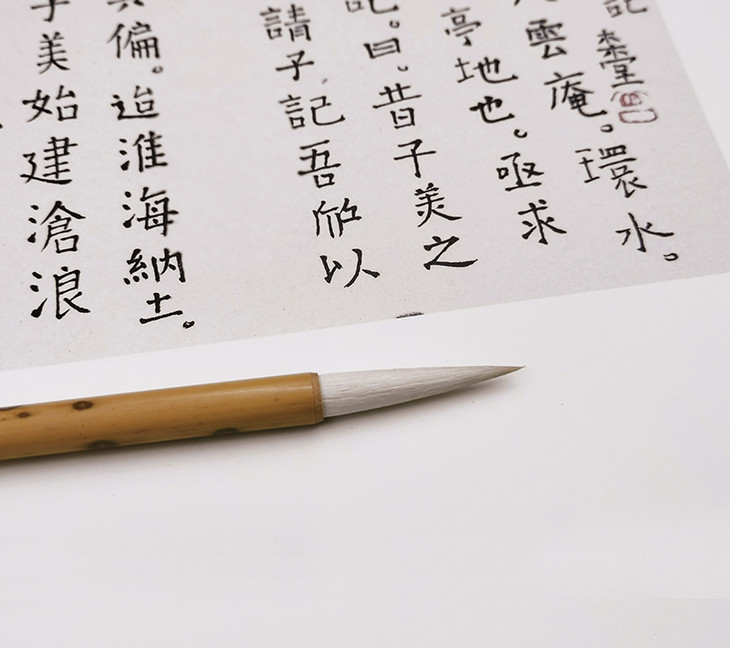 記
雲庵。環水。
亭地也。亟求
記。曰。昔子美之
請子記吾所以
偏。迨淮海納土。
子美始建滄浪